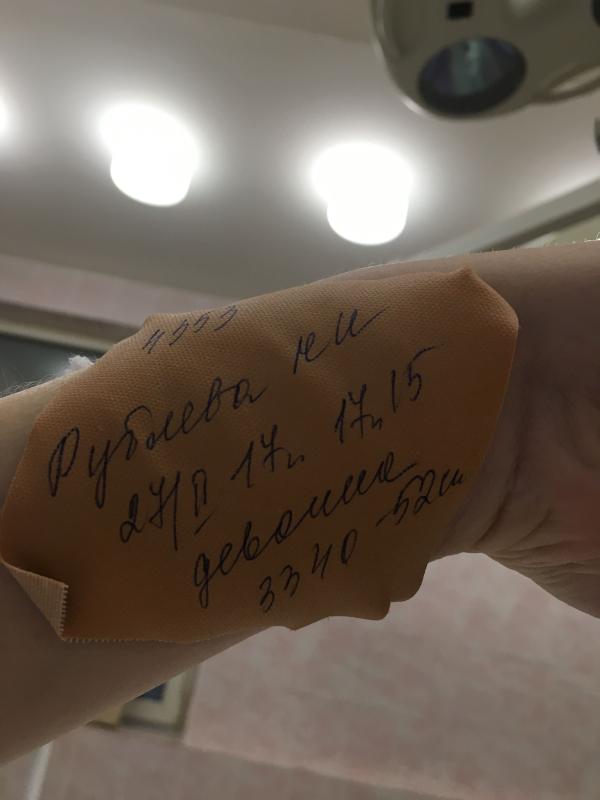 4353
Рублева МИ
27/II 17г. 17ч 15
девочка
3340 - 52см